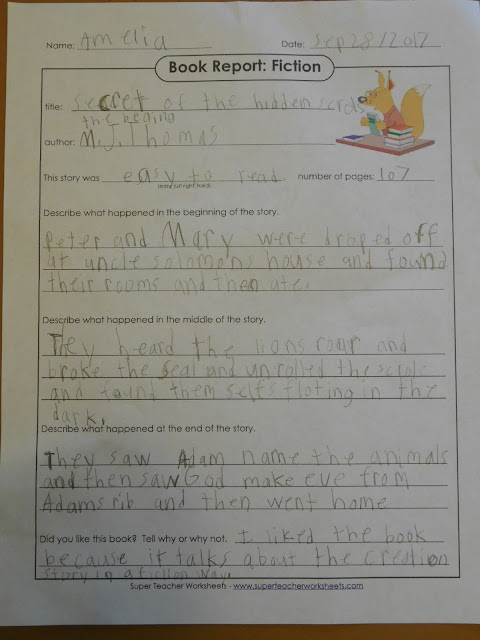 Name: Amelia Date: Sep 28/2017
Book Report: Fiction
title: Secret of the hidden scrols
the begining
author: M.J. Thomas
This story was easy to read. number of pages: 107
(easy, just right, hard)
Describe what happened in the beginning of the story.
Peter and Mary were droped off
at uncle solomons house and found
their rooms and then ate.
Describe what happened in the middle of the story.
They heard the lions roar and
broke the seal and unrolled the scrole
and found them selfs floting in the
dark.
Describe what happened at the end of the story.
They saw Adam name the animals
and then saw God make eve from
Adams rib and then went home
Did you like this book? Tell why or why not. I liked the book
because it talks about the creation
story in a fiction way.
Super Teacher Worksheets - www.superteacherworksheets.com